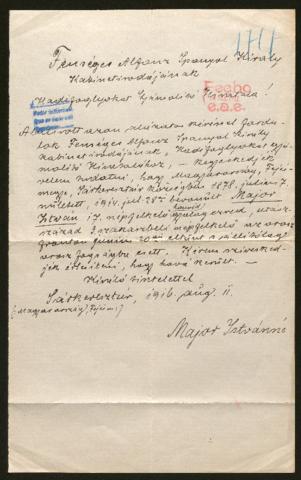 Fenséges Alfonz Spanyol Király
Kabinetirodájának
Hadifoglyokat Gyámolító Hivatala!
Alulirott azon alázatos kéréssel fordu-
lok Fenséges Alfonz Spanyol Király
kabinetirodájának, Hadifoglyokat gyá-
molító Hivatalához, – kegyeskedjék
velem tudatni, hogy Magyarország, Fejér-
megye, Sárkeresztúr községben 1878. julius 7.
született, 1914. jul. 28án bevonult Major
István 17. honvéd népfelkelő gyalog ezred,
század szakaszbeli népfelkelő az orosz
fronton junius
orosz fogságba esett. Kérem szivesked-
jék értesíteni, hogy hová került. –
Kiváló tisztelettel
Sárkeresztúr, 1916. aug. 11.
(Magyarország, Fejérm.)
Major Istvánné